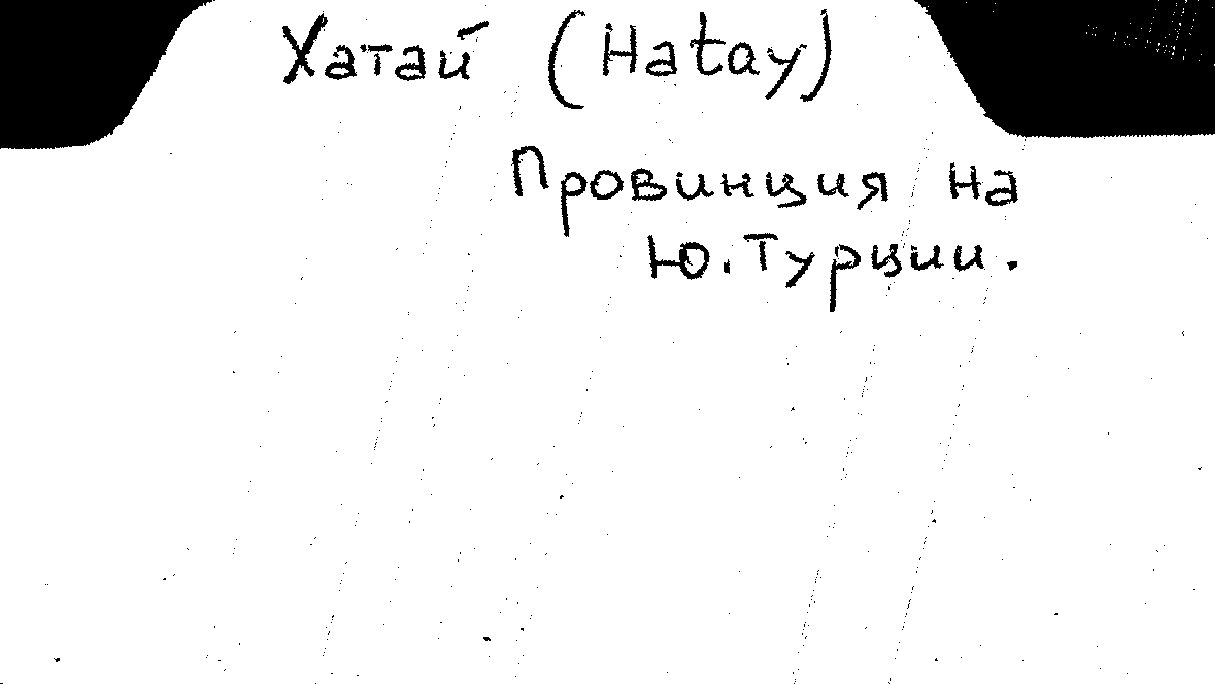 Хатай (Hatay)
Провинция на
Ю. Турции.